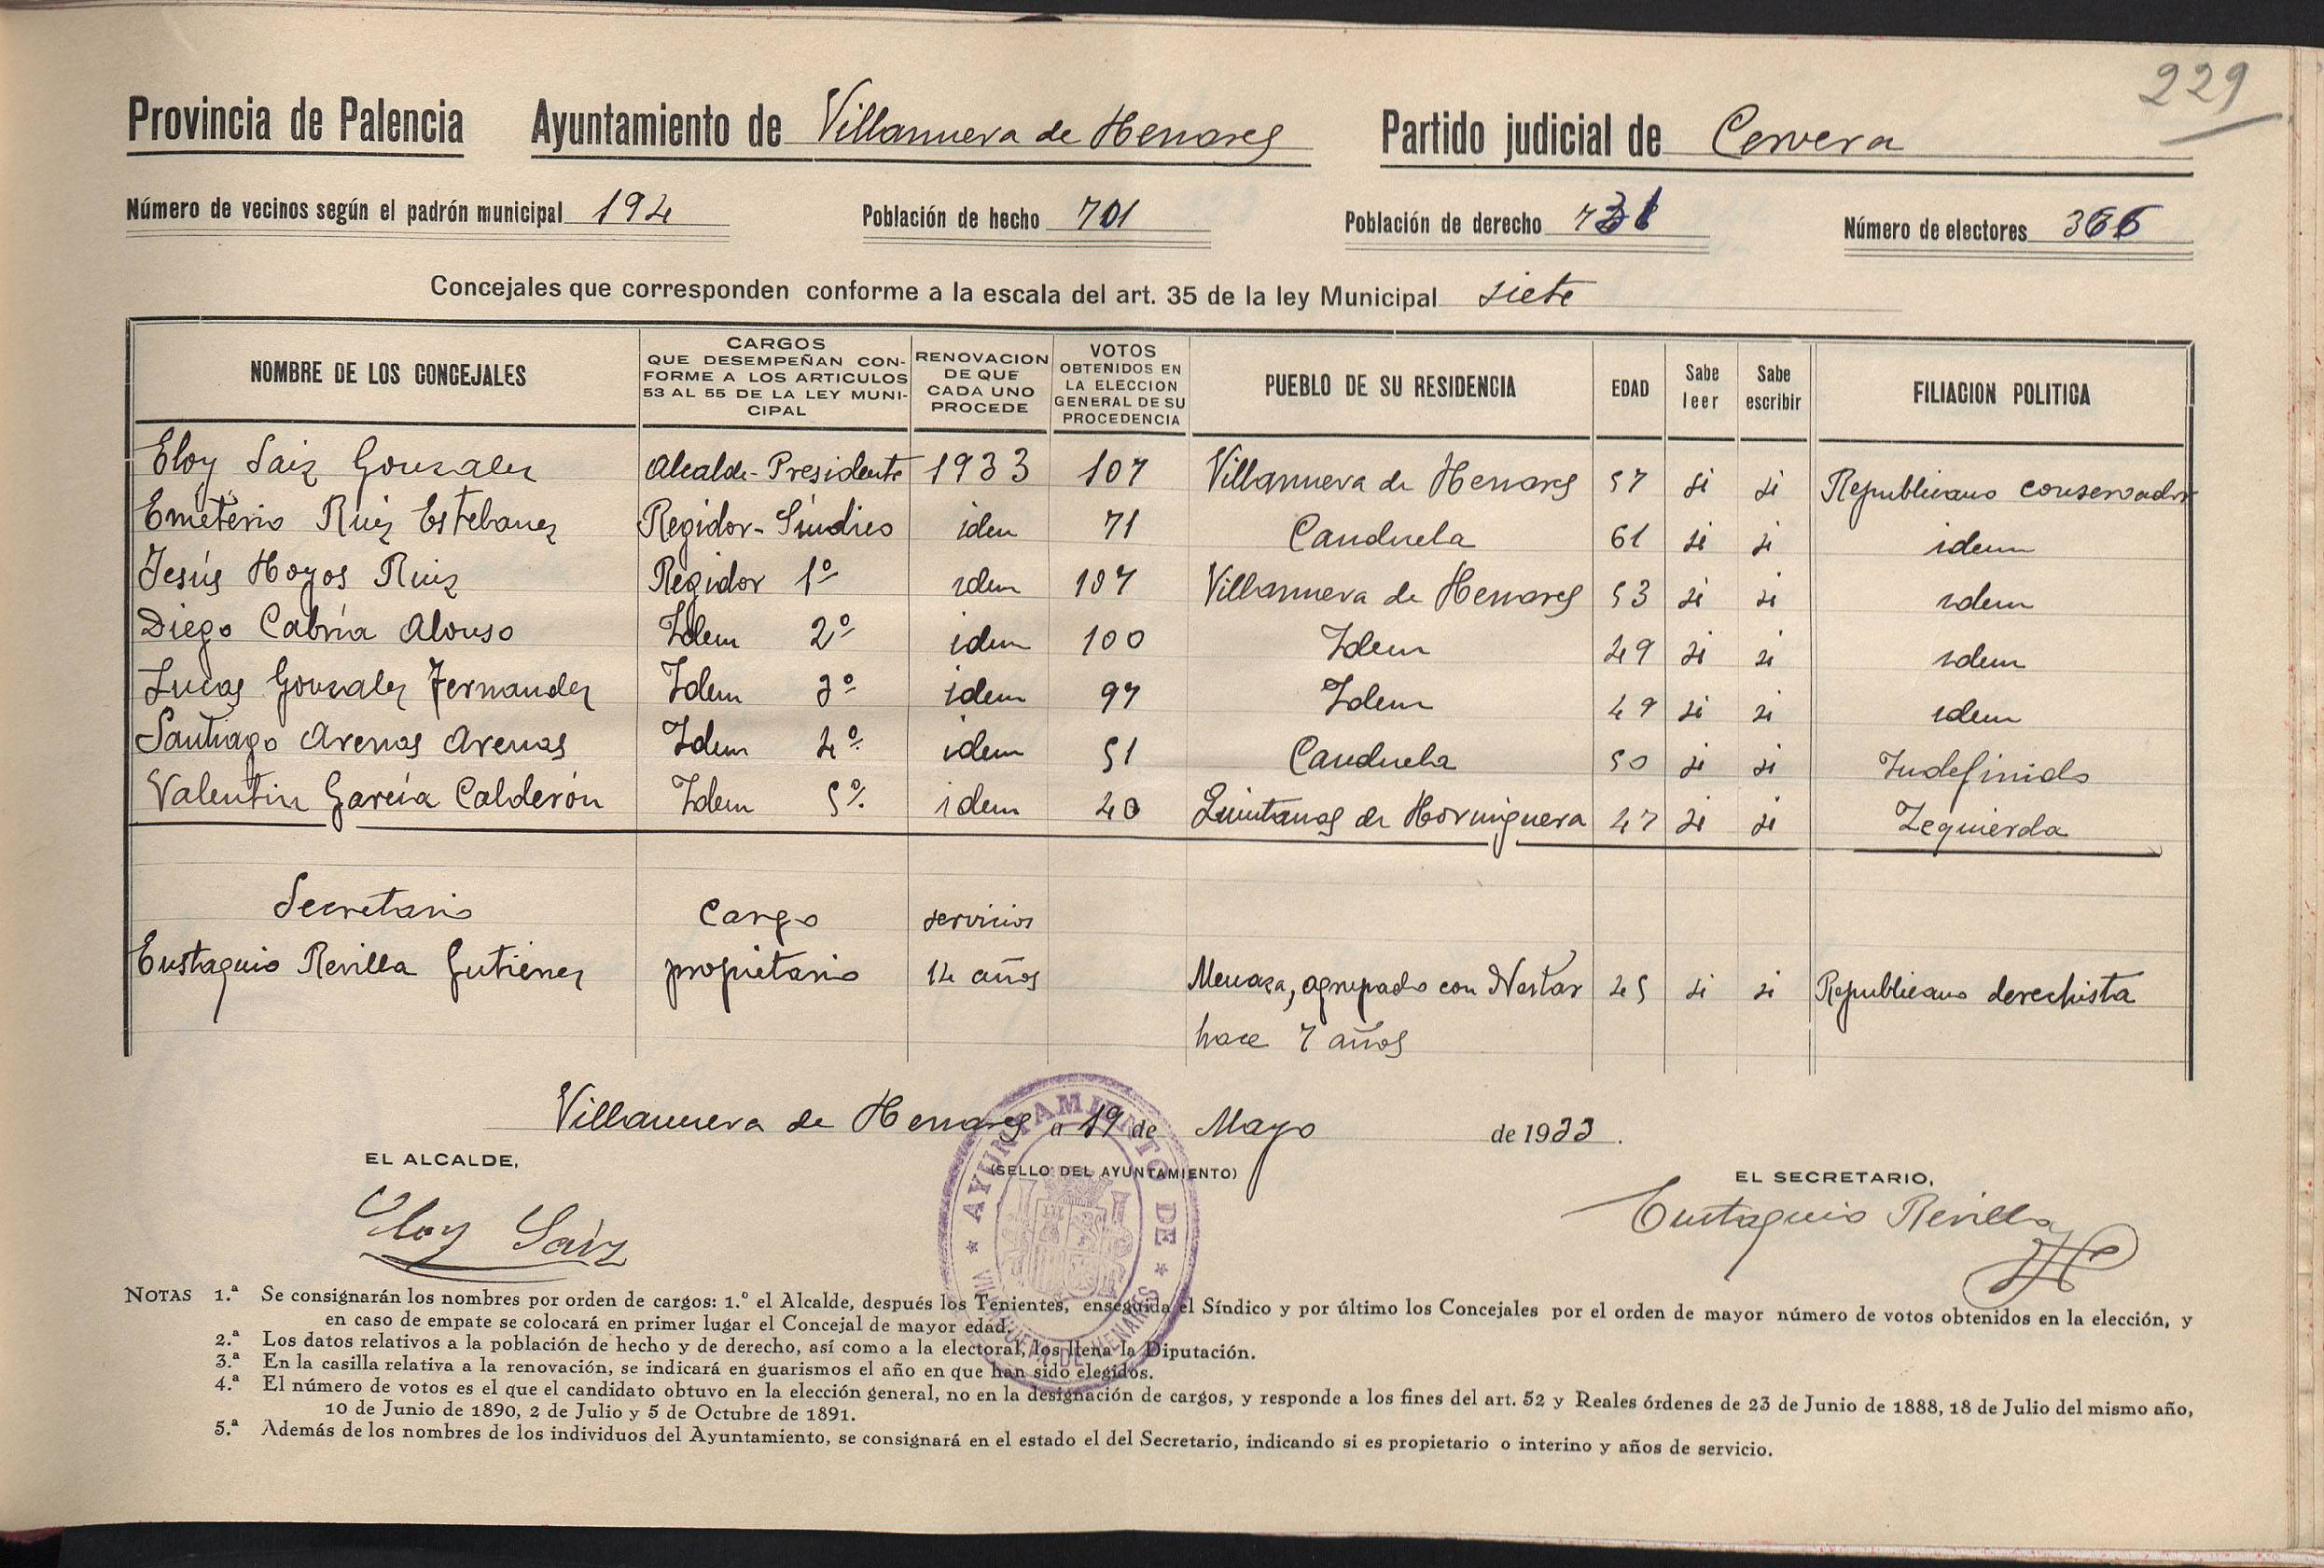 229
Provincia de Palencia Ayuntamiento de Villanueva de Henares Partido judicial de Cervera
Número de vecinos según el padrón municipal 194 Población de hecho 701 Población de derecho Número de electores
Concejales que corresponden conforme a la escala del art. 35 de la ley Municipal siete
NOMBRE DE LOS CONCEJALES CARGOS QUE DESEMPEÑAN CONFORME A LOS ARTICULOS 53 AL 55 DE LA LEY MUNICIPAL RENOVACION DE QUE CADA UNO PROCEDE VOTOS OBTENIDOS EN LA ELECCION GENERAL DE SU PROCEDENCIA PUEBLO DE SU RESIDENCIA EDAD Sabe leer Sabe escribir FILIACION POLITICA
Eloy Saiz Gonzalez Alcalde-Presidente 1933 107 Villanueva de Henares 57 si si Republicano conservador
Emeterio Ruiz Estebanez Regidor-Síndico idem 71 Canduela 61 si si idem
Jesús Hoyos Ruiz Regidor 1º idem 107 Villanueva de Henares 53 si si idem
Diego Cabria Alonso Idem 2º idem 100 Idem 49 si si idem
Lucas Gonzalez Fernandez Idem 3º idem 97 Idem 49 si si idem
Santiago Arenas Arenas Idem 4º idem 51 Canduela 50 si si Indefinido
Valentin García Calderón Idem 5º idem 40 Quintanas de Hormiguera 47 si si Izquierda
Secretario Cargo servicios
Eustaquio Revilla Gutierrez propietario 14 años Menaza, agrupado con Nestar 45 si si Republicano derechista
hace 7 años
Villanueva de Henares a 19 de Mayo de 1933.
EL ALCALDE,
(SELLO DEL AYUNTAMIENTO)
EL SECRETARIO,
Eloy Saiz
Eustaquio Revilla
AYUNTAMIENTO DE VILLANUEVA DE HENARES
NOTAS 1.ª Se consignarán los nombres por orden de cargos: 1.º el Alcalde, después los Tenientes, enseguida el Síndico y por último los Concejales por el orden de mayor número de votos obtenidos en la elección, y
en caso de empate se colocará en primer lugar el Concejal de mayor edad.
2.ª Los datos relativos a la población de hecho y de derecho, así como a la electoral, los llena la Diputación.
3.ª En la casilla relativa a la renovación, se indicará en guarismos el año en que han sido elegidos.
4.ª El número de votos es el que el candidato obtuvo en la elección general, no en la designación de cargos, y responde a los fines del art. 52 y Reales órdenes de 23 de Junio de 1888, 18 de Julio del mismo año,
10 de Junio de 1890, 2 de Julio y 5 de Octubre de 1891.
5.ª Además de los nombres de los individuos del Ayuntamiento, se consignará en el estado el del Secretario, indicando si es propietario o interino y años de servicio.